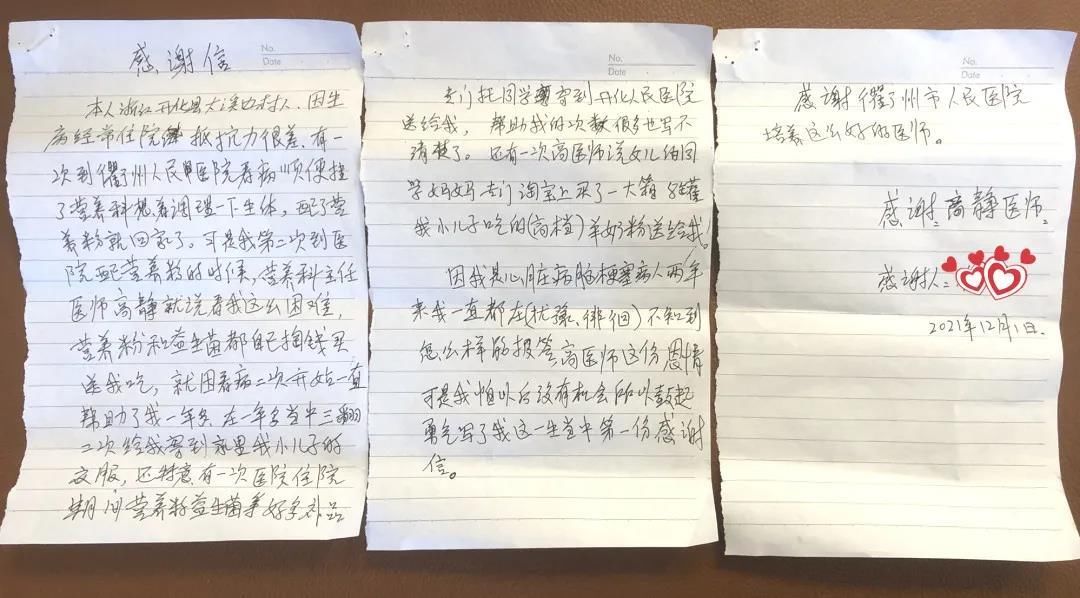 No.
Date
感谢信
本人浙江开化县大溪边村人、因生
病经常住院 抵抗力很差、有一
次到衢州人民医院看病顺便挂
了营养科想着调理一下生体，配了营
养粉就回家了。可是我第二次到医
院配营养粉的时候，营养科主任
医师高静就说看我这么困难，
营养粉和益生菌都自己掏钱买
送我吃，就因看病二次开始一直
帮助了我一年多、在一年多当中三翻
二次给我寄到家里我小儿子的
衣服，还特意有一次医院住院
期间营养粉益生菌 好多补品
No.
Date
专门托同学寄到开化人民医院
送给我，帮助我的次数很多也写不
清楚了。还有一次高医师说女儿的同
学妈妈专门淘宝上买了一大箱 罐
我小儿子吃的(高档)羊奶粉送给我！
因我是心脏病脑梗塞病人两年
来我一直都在(犹豫、徘徊)不知到
怎么样能报答高医师这份恩情
可是我怕以后没有机会所以鼓起
勇气写了我这一生当中第一份感谢
信。
No.
Date
感谢衢州市人民医院
培养这么好的医师。
感谢：高静医师.
感谢人：
2021年12月1日.